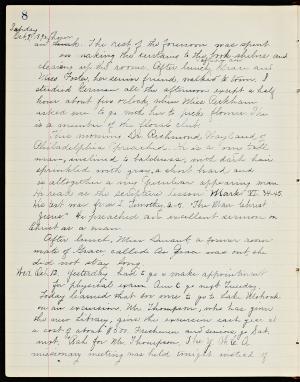 8
Sunday
Oct. 9,
an hour. The rest of the forenoon was spent
in making the curtains to the book-shelves and
cleaning up the rooms. After lunch, Grace and
Miss Foster, her senior friend, walked to town. I
studied German all the afternoon except a half
hour about five o'clock, when Miss
asked me to go with her to pick flowers. She
is a member of the Flower Club.
This morning Dr. Richmond, of
Philadelphia preached. He is a very tall
man, inclined to baldness, with dark hair
sprinkled with gray, a short beard and
is altogether a very peculiar appearing man
He read as the scripture lesson Mark VI: 34-45.
His text was from I Timothy, 2-5. "The Man Christ
Jesus" He preached an excellent sermon on
Christ as a man.
After lunch, Miss a former room
mate of Grace called. As Grace was out, she
did not stay long.
Wed. Oct. 12. Yesterday, had to go & make appointment
for physical exam. Am to go next Tuesday.
Today learned that we were to go to Lake Mohonk
on an excursion. Mr. Thompson, who has given
the new Library, gives the excursion each year at
a cost of about $500. Freshmen and seniors go Sat.
next. 'Rah for Mr. Thompson. The Y. W. C. A.
missionary meeting was held tonight instead of